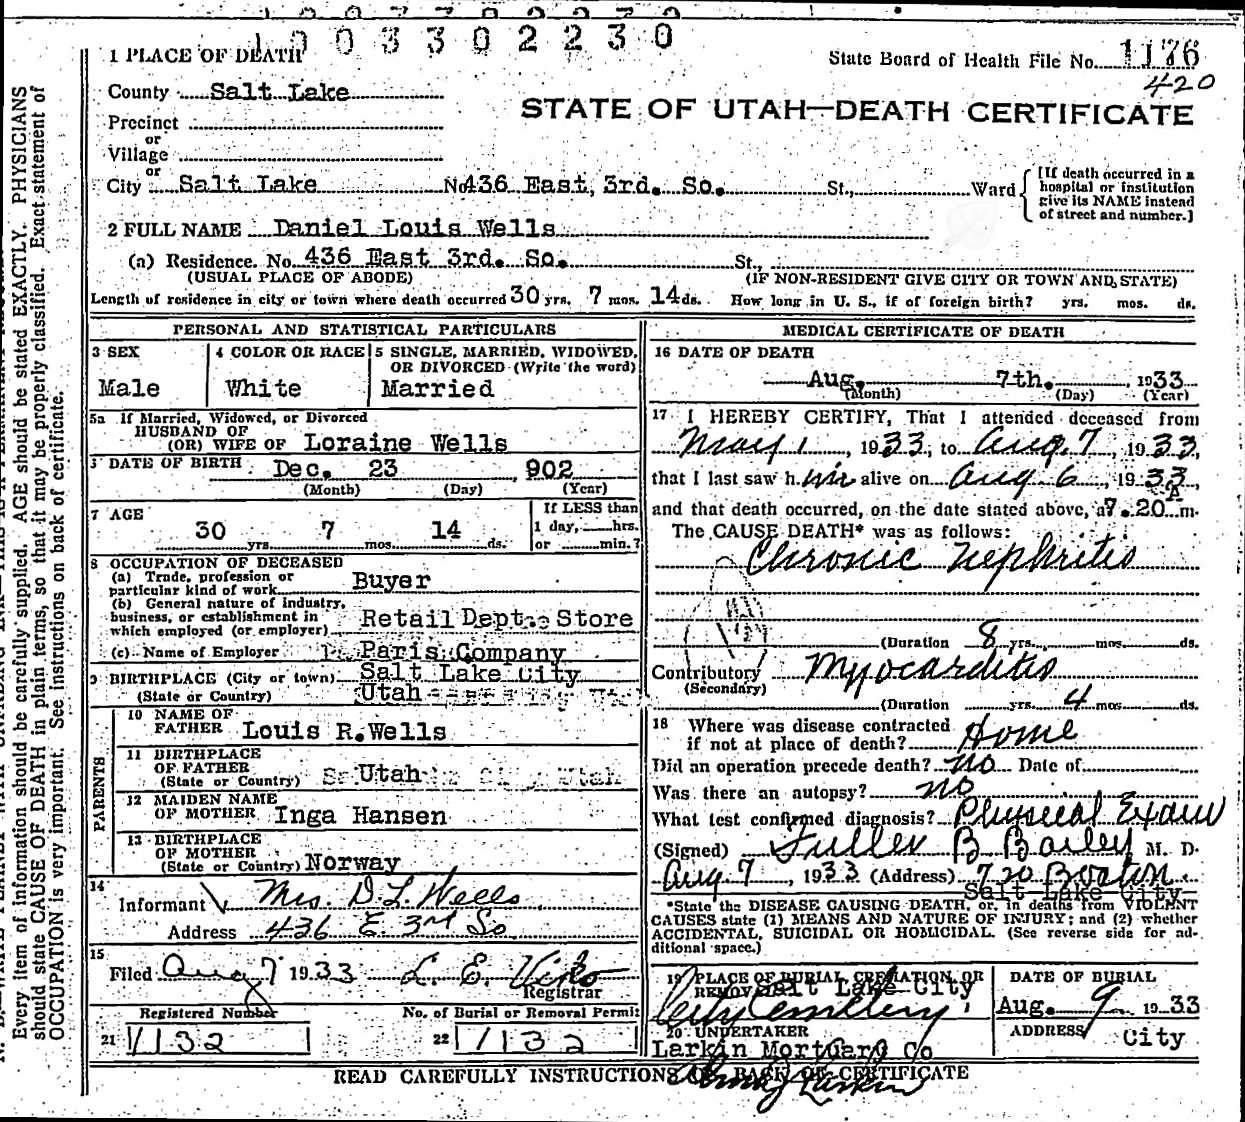 1003302230
1 PLACE OF DEATH
State Board of Health File No. 1176
420
County Salt Lake
STATE OF UTAH—DEATH CERTIFICATE
Precinct
or
Village
or
City Salt Lake No. 436 East, 3rd. So. St., Ward
[If death occurred in a hospital or institution give its NAME instead of street and number.]
2 FULL NAME Daniel Louis Wells
(a) Residence. No. 436 East 3rd. So. St.,
(USUAL PLACE OF ABODE) (IF NON-RESIDENT GIVE CITY OR TOWN AND STATE)
Length of residence in city or town where death occurred 30 yrs. 7 mos. 14 ds. How long in U. S., if of foreign birth? yrs. mos. ds.
PERSONAL AND STATISTICAL PARTICULARS
3 SEX
Male
4 COLOR OR RACE
White
5 SINGLE, MARRIED, WIDOWED,
OR DIVORCED (Write the word)
Married
5a If Married, Widowed, or Divorced
HUSBAND OF
(OR) WIFE OF Loraine Wells
DATE OF BIRTH Dec. 23, 902
(Month) (Day) (Year)
7 AGE
30 yrs. 7 mos. 14 ds.
If LESS than
1 day, hrs.
or min.?
8 OCCUPATION OF DECEASED
(a) Trade, profession or
particular kind of work Buyer
(b) General nature of industry,
business, or establishment in
which employed (or employer) Retail Dept. Store
(c) Name of Employer Paris Company
9 BIRTHPLACE (City or town) Salt Lake City
(State or Country) Utah
PARENTS
10 NAME OF
FATHER Louis R. Wells
11 BIRTHPLACE
OF FATHER
(State or Country) Utah
12 MAIDEN NAME
OF MOTHER Inga Hansen
13 BIRTHPLACE
OF MOTHER
(State or Country) Norway
14
Informant Mrs. D. L. Wells
Address 436 E. 3rd So
15
Filed Aug 7 1933 L. E. Viko
Registrar
Registered Number
21 1132
No. of Burial or Removal Permit
22 1132
MEDICAL CERTIFICATE OF DEATH
16 DATE OF DEATH
Aug. 7th. 1933
(Month) (Day) (Year)
17 I HEREBY CERTIFY, That I attended deceased from
May 1, 1933, to Aug. 7, 1933,
that I last saw h im alive on Aug 6, 1933,
and that death occurred, on the date stated above, at 7.20 A m.
The CAUSE DEATH* was as follows:
Chronic Nephritis
(Duration 8 yrs. mos. ds.
Contributory Myocarditis
(Secondary)
(Duration yrs. 4 mos. ds.
18 Where was disease contracted
if not at place of death? Home
Did an operation precede death? no Date of
Was there an autopsy? no
What test confirmed diagnosis? Physical Exam
(Signed) Fuller B Bailey M. D.
Aug 7, 1933 (Address) 720 Boston
Salt Lake City
*State the DISEASE CAUSING DEATH, or, in deaths from VIOLENT
CAUSES state (1) MEANS AND NATURE OF INJURY; and (2) whether
ACCIDENTAL, SUICIDAL OR HOMICIDAL. (See reverse side for ad-
ditional space.)
19 PLACE OF BURIAL CREMATION, OR
REMOVAL Salt Lake City
City Cemetery
DATE OF BURIAL
Aug. 9 1933
20 UNDERTAKER
Larkin Mortuary Co
ADDRESS
City
READ CAREFULLY INSTRUCTIONS ON BACK OF CERTIFICATE
Every item of information should be carefully supplied. AGE should be stated EXACTLY. PHYSICIANS
should state CAUSE OF DEATH in plain terms, so that it may be properly classified. Exact statement of
OCCUPATION is very important. See instructions on back of certificate.